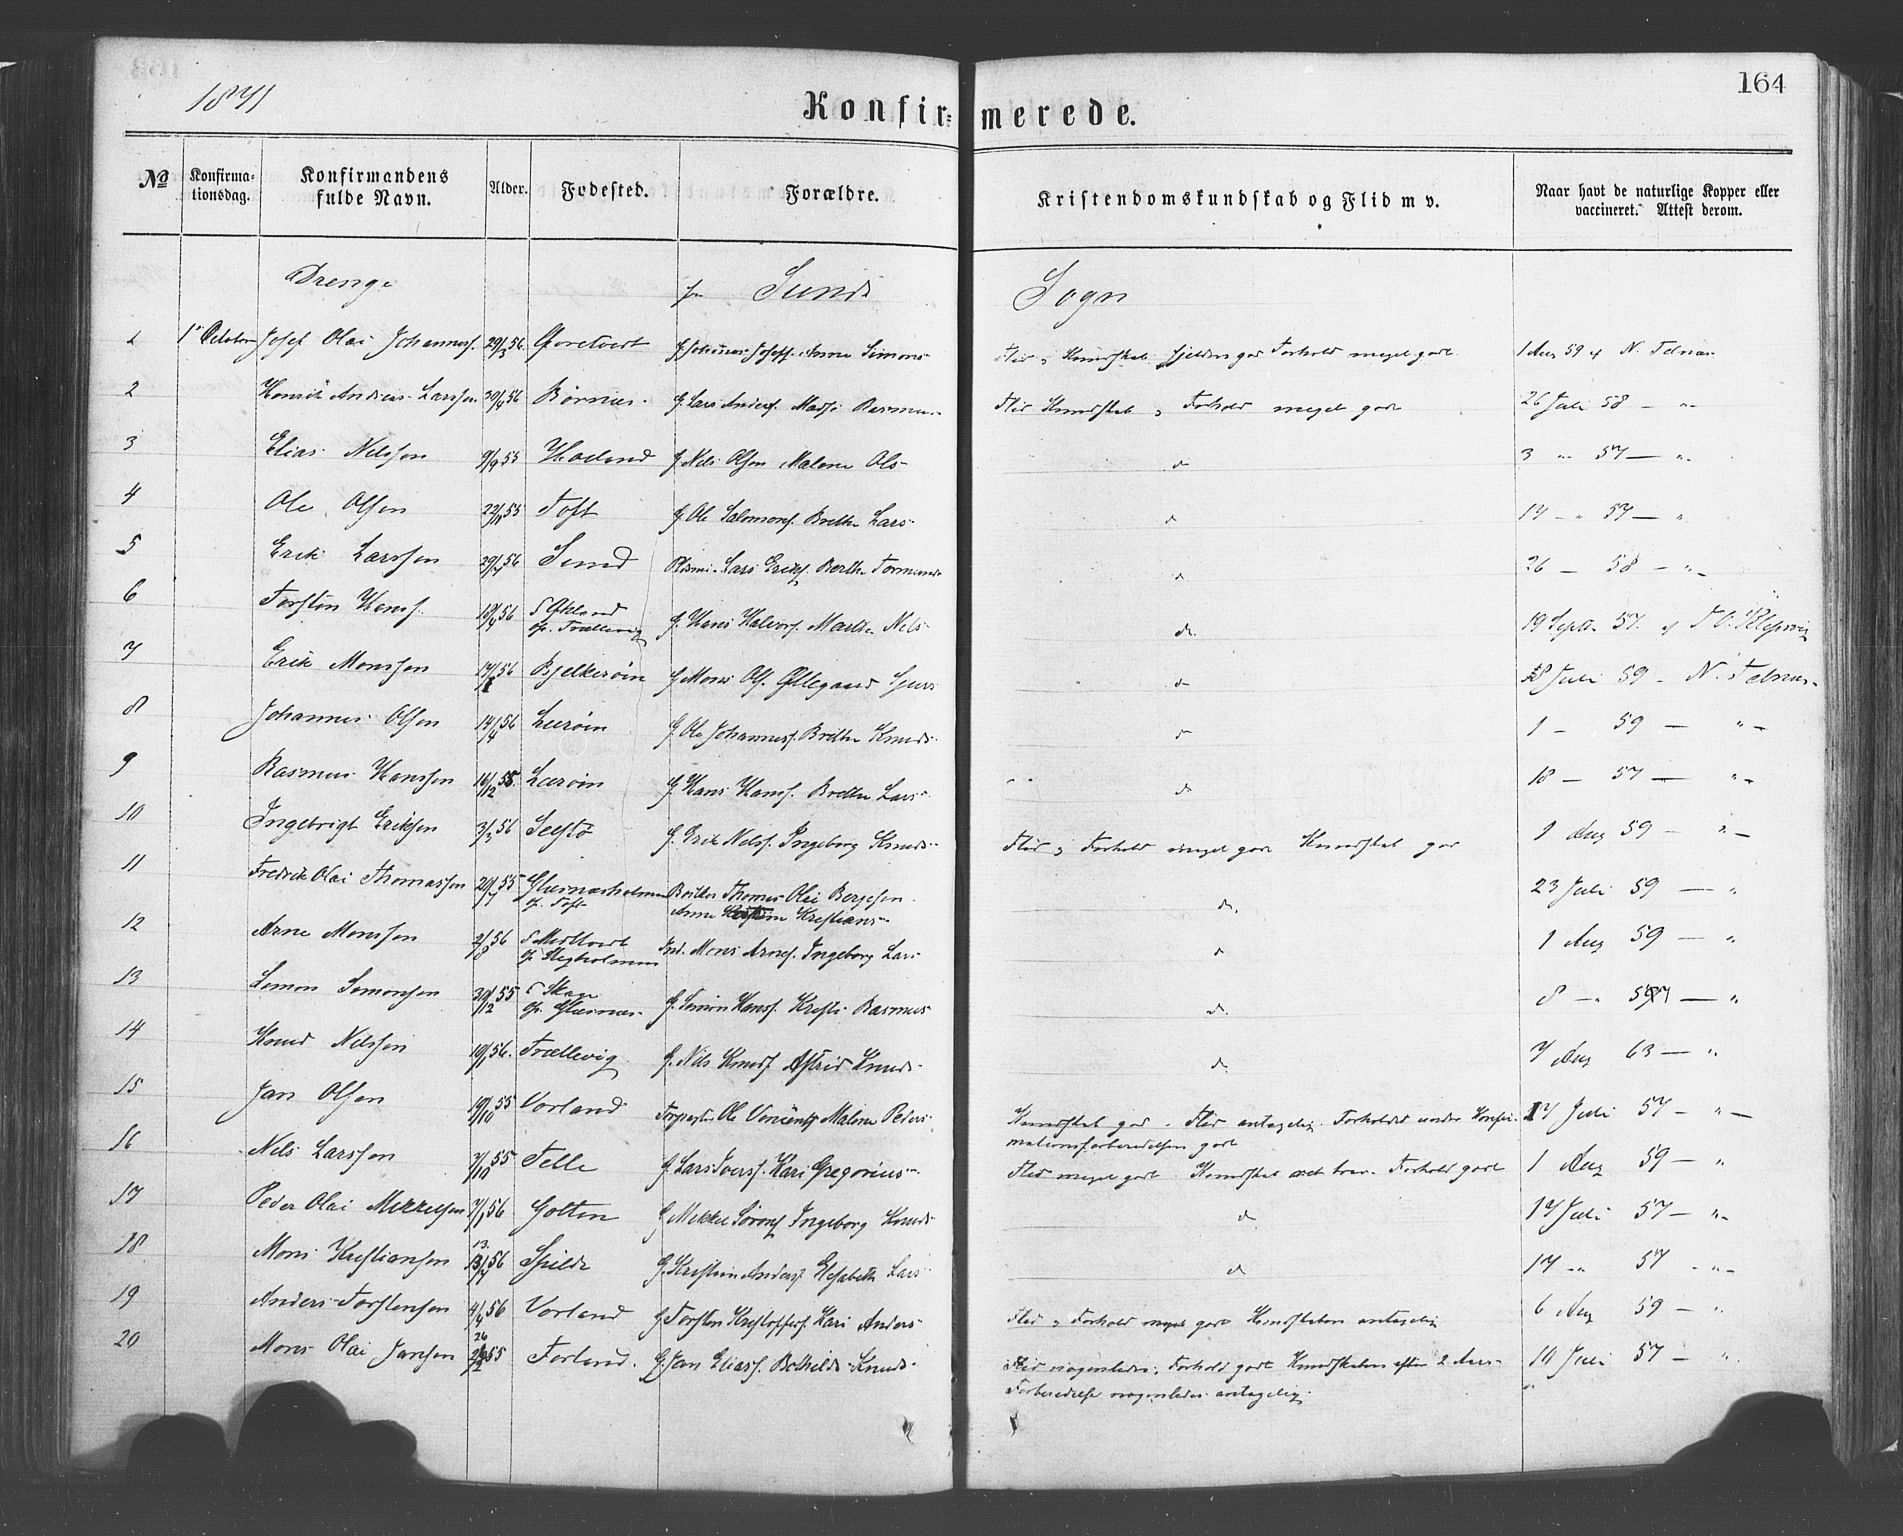 164
1871
Konfirmerede.
№ Konfirmationsdag. Konfirmandens fulde Navn. Alder. Fødested. Forældre. Kristendomskundskab og Flid m v. Naar havt de naturlige Kopper eller vaccineret. Attest derom.
Drenge fra Sunds Sogn
1 1ste Oktober Josef Olai Johannesf. 29/3 56. G. Johannes Josefs. Anne Simons- 1 Aug 59 af N. Telnæs
2 Andreas Larssen 30/4 56 Børnæs. G. Lars Andersf. Madsi Rasmus- Flid Kundskab og Forhold meget godt 26 Juli 58 — "-
3 Elias Nelssen 9/9 55 G. Nels Olsen Malene Ols- do 3 " 57 — "-
4 Ole Olsen 55 Toft G Ole Salomonsf. Brethe Lars- do 17 - " 57 — "
5 Erik Larssen 29/7 56 Sund Lars Eriks. Berthe Tormunds do 26 — 58 — "-
6 Torsten Hansf. 18/4 56 f Økland op. Trællevig G. Hans Halvorf. Marthe Nels- do. 19 Septr. 57. af
7 Erik Monssen 17/1 56 Bjelkerøen G Mons Ols. Øllegaard Sjurs do 28 Juli 59 - N. Telnæs.
8 Johannes Olsen 14/4 56 Lærøen G Ole Johannesf. Brethe Knuds- do 1 - 59 — "-
9 Rasmus Hanssen 16/12 55. Lærøen G. Hans Hansf. Brethe Lars- do 18 — 57 — "-
10 Ingebrigt Eriksen 3/3 56 G. Erik Nelsf. Ingeborg Knuds- Flid og Forhold meget godt Kundskab god 1 Aug 59 — "-
11 Fredrik Olai Thomassen 20/7 55 Glesnæsholmen op. Toft Thomas Olai Bergesen Anne Kristians- do. 23 Juli 59 — "
12 Arne Monssen 2/8 56 f Midttveit Ind. Mons Arnef. Ingeborg Lars- do 1 Aug 59 — "
13 Simon Simonsen 30/12 55 f Skage op. Glesnæs- G. Simon Hansf. Kristi Rasmus- do. 8 - " 57 — "
14 Knud Nelssen 56. Trællevig G. Nils Knudsf Astrid Knuds- do. 7 Aug 63 — "
15 Jan Olsen 19/10 55 Vorland Ole Malene Peders Kundskab god. Flid antagelig. Forholdet under Konfirmationsforberedelsen godt 17 Juli 57 — "-
16 Nels Larssen 3/10 55 Telle G. Lars Iversf. Kari Gregorius- Flid meget godt. Kundskab Forhold godt 1 Aug 59 — "
17 Peder Olai Mikkelsen 7/1 56 Golten G Mikkel Sørensf Ingeborg Knuds- do. 17 Juli 57 — "-
18 Mons Kristiansen 13. 13/7 56 Spilde G. Kristian Andersf Elisabeth Lars- do 17 " 57 "-
19 Anders Torstensen 4/4 56 Vorland G Torsten Kristoffersf. Kari Anders- Flid og Forhold meget godt Kundskaben antagelig 6 Aug 59 — "
20 Mons Olai Jansen 26 55 Forland. G. Jan Eliasf. Bothilde Knuds- Flid nogenledes. Forhold godt Kundskaben efter 2 Aars- Forberedelse nogenledes antagelig. Juli 57 — "